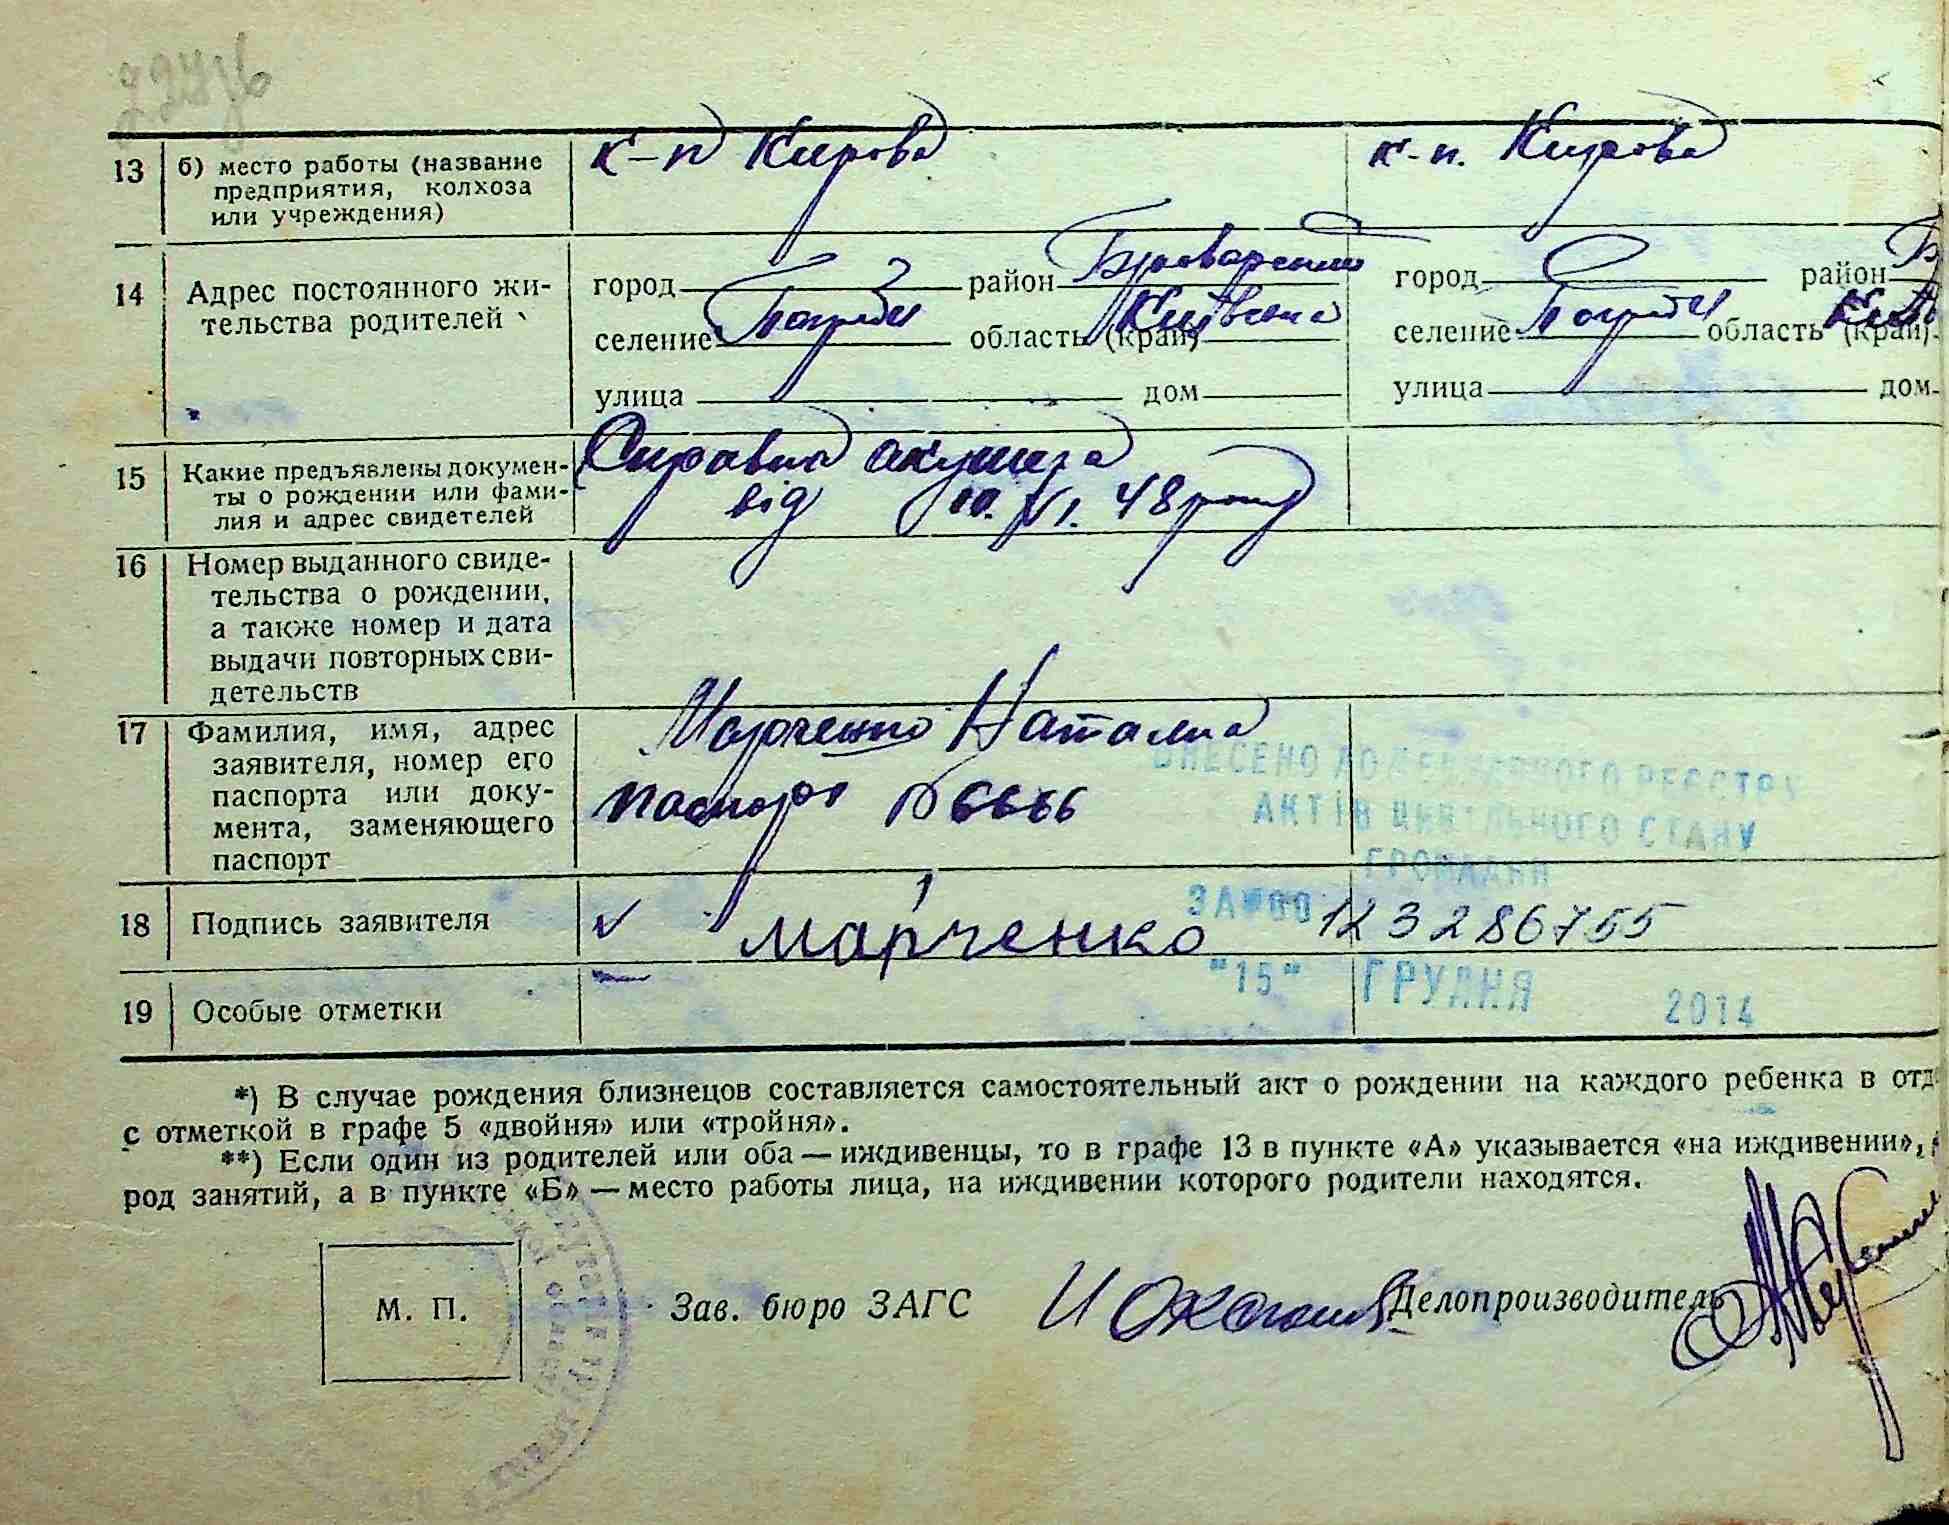 13 б) место работы (название предприятия, колхоза или учреждения)
к-п Кирова
к-п. Кирова
14 Адрес постоянного жительства родителей
город район Броварський
селение Погреби область (край) Київська
улица дом
город район Б
селение Погреби область (край). Київ
улица дом
15 Какие предъявлены документы о рождении или фамилия и адрес свидетелей
Справка акушера
від 10. VI. 48 року
16 Номер выданного свидетельства о рождении, а также номер и дата выдачи повторных свидетельств
17 Фамилия, имя, адрес заявителя, номер его паспорта или документа, заменяющего паспорт
Марченко Наталка
паспорт 6666
ВНЕСЕНО ДО ДЕРЖАВНОГО РЕЄСТРУ
АКТІВ ЦИВІЛЬНОГО СТАНУ
ГРОМАДЯН
ЗА №00 123286755
"15" ГРУДНЯ 2014
18 Подпись заявителя
Марченко
19 Особые отметки
*) В случае рождения близнецов составляется самостоятельный акт о рождении на каждого ребенка в отд
с отметкой в графе 5 «двойня» или «тройня».
**) Если один из родителей или оба — иждивенцы, то в графе 13 в пункте «А» указывается «на иждивении»,
род занятий, а в пункте «Б» — место работы лица, на иждивении которого родители находятся.
М. П.
Зав. бюро ЗАГС
Делопроизводитель